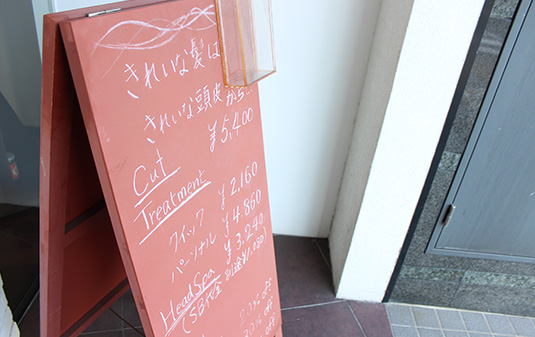 きれいな髪は
きれいな頭皮から…
¥5,400
Cut
Treatment
¥2,160
クイック ¥4,860
パーソナル ¥3,240
HeadSpa
20% OFF
% OFF